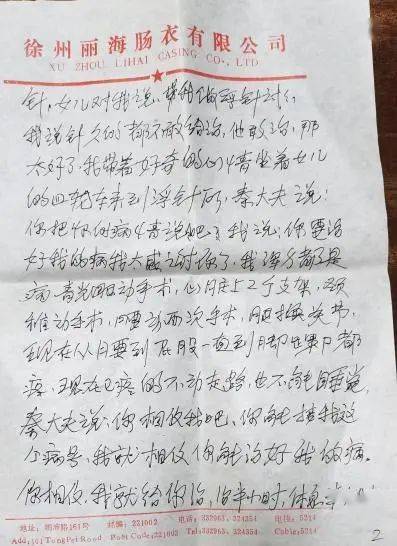 徐州丽海肠衣有限公司
XU ZHOU LIHAI CASING CO., LTD
针,女儿对我说,带我们去浮针治疗,
我说针久的都不敢给治,他敢治,那
太好了,我带着好奇的心情坐着女儿
的四轮车来到浮针所,秦大夫说:
你把你的病情说说吧,我说,你要治
好我的病我太感谢你了,我浑身都是
病,青光眼动手术,心脏上2个支架,颈
椎动手术,腰动两次手术,
现在从腰到屁股一直到脚后跟都
疼,现在疼的不动走路,也不能睡觉,
秦大夫说:你相信我吧,你能挂我这
个病号,我就相信你能治好我的病。
你相信,我就给你治,治半小时,休息
地址:湖滨路161号 邮编:221002 电话:332963、324354 电挂:5214
Add:161 Tong Pei Road Post Code:221002 Tel:332963、324354 Cable:5214
2